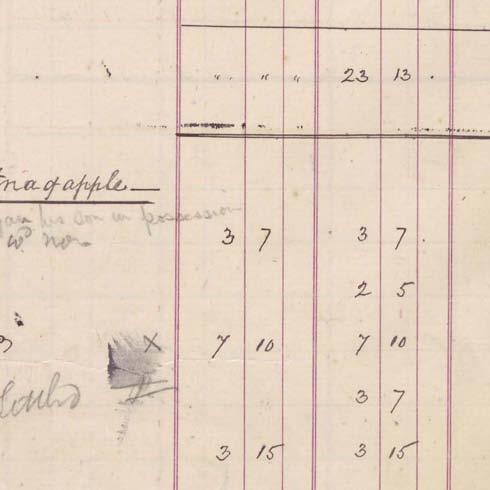 " " " 23 13 .
nagapple
his son in possession
3 7 3 7 .
2 5
X 7 10 7 10
3 7
3 15 3 15